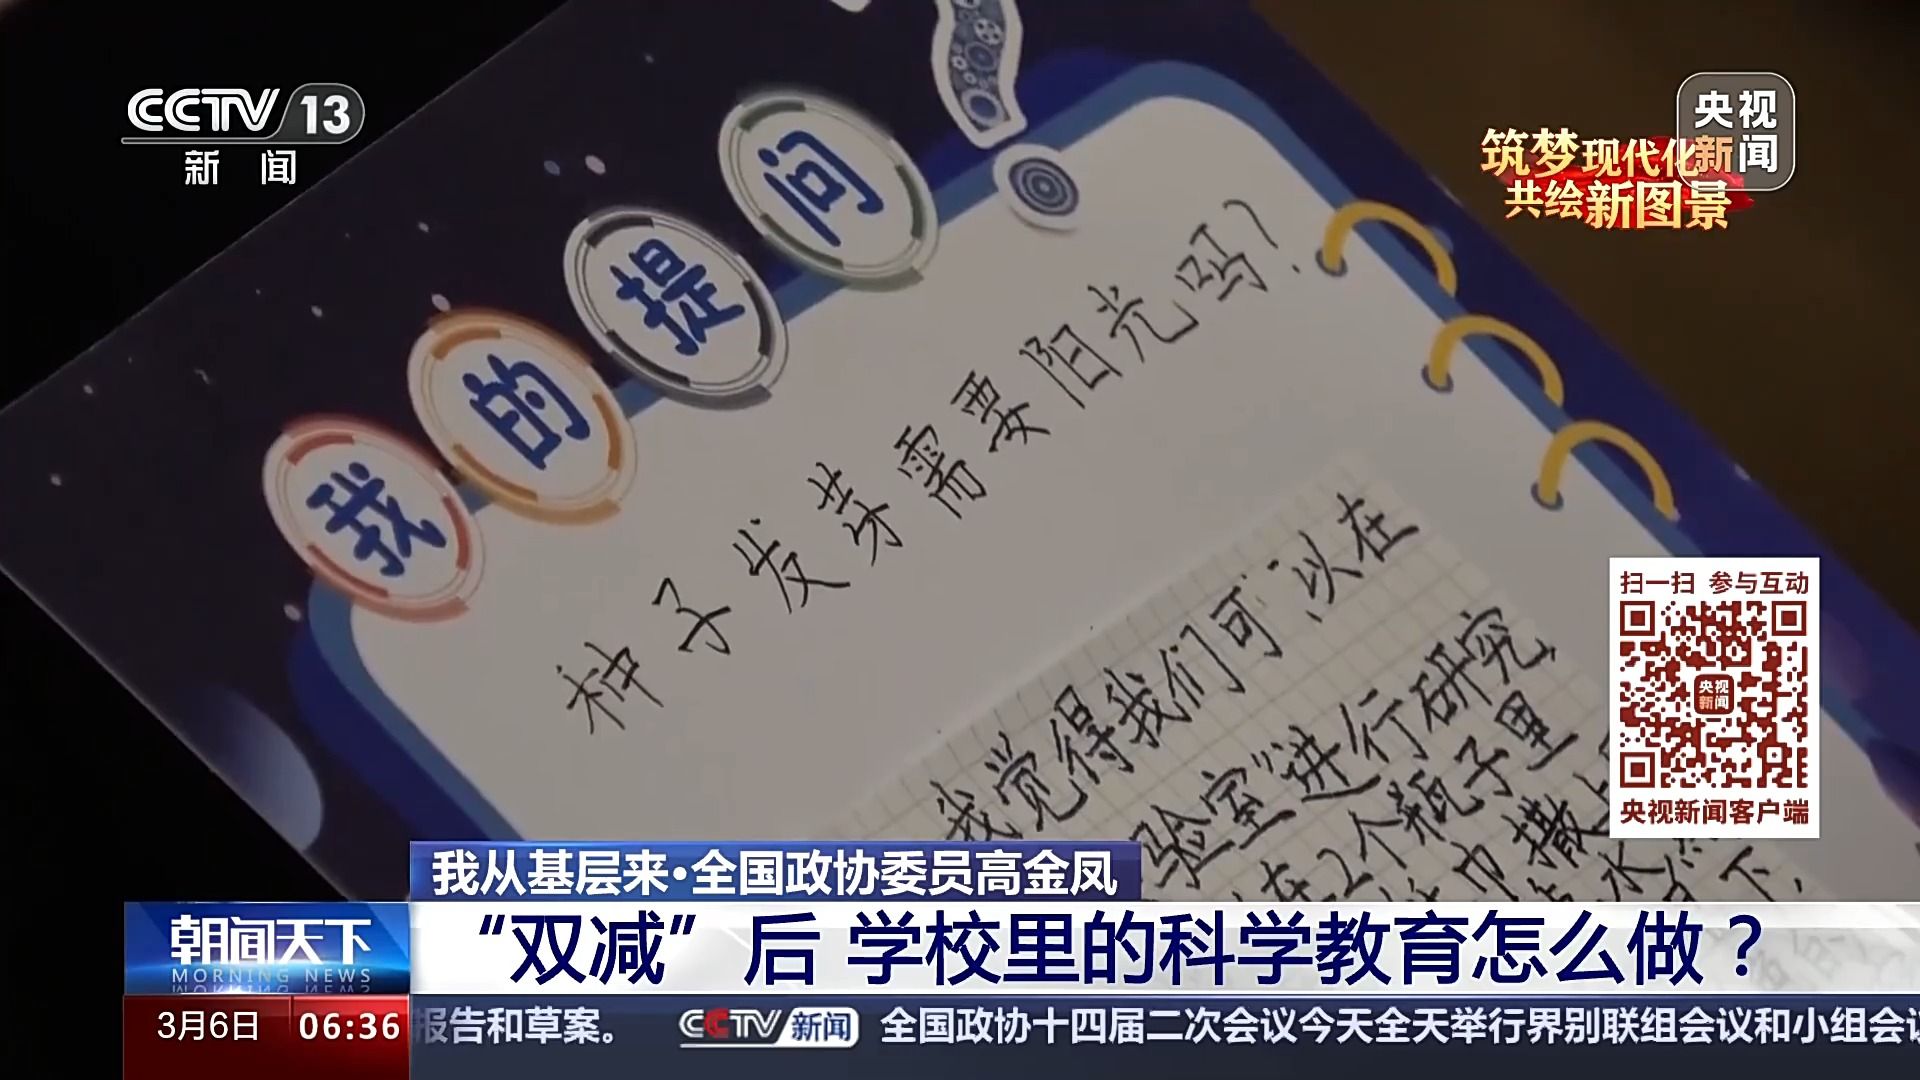 CCTV 13
新闻
央视
新闻
筑梦现代化
共绘新图景
我的提问
种子发芽需要阳光吗?
我觉得我们可以在
验室"进行研究,
在2个瓶子里
巾撒上
水
下,
扫一扫 参与互动
央视
新闻
央视新闻客户端
我从基层来·全国政协委员高金凤
“双减”后 学校里的科学教育怎么做？
朝闻天下
MORNING NEWS
3月6日 06:36
报告和草案。 CCTV新闻 全国政协十四届二次会议今天全天举行界别联组会议和小组会议